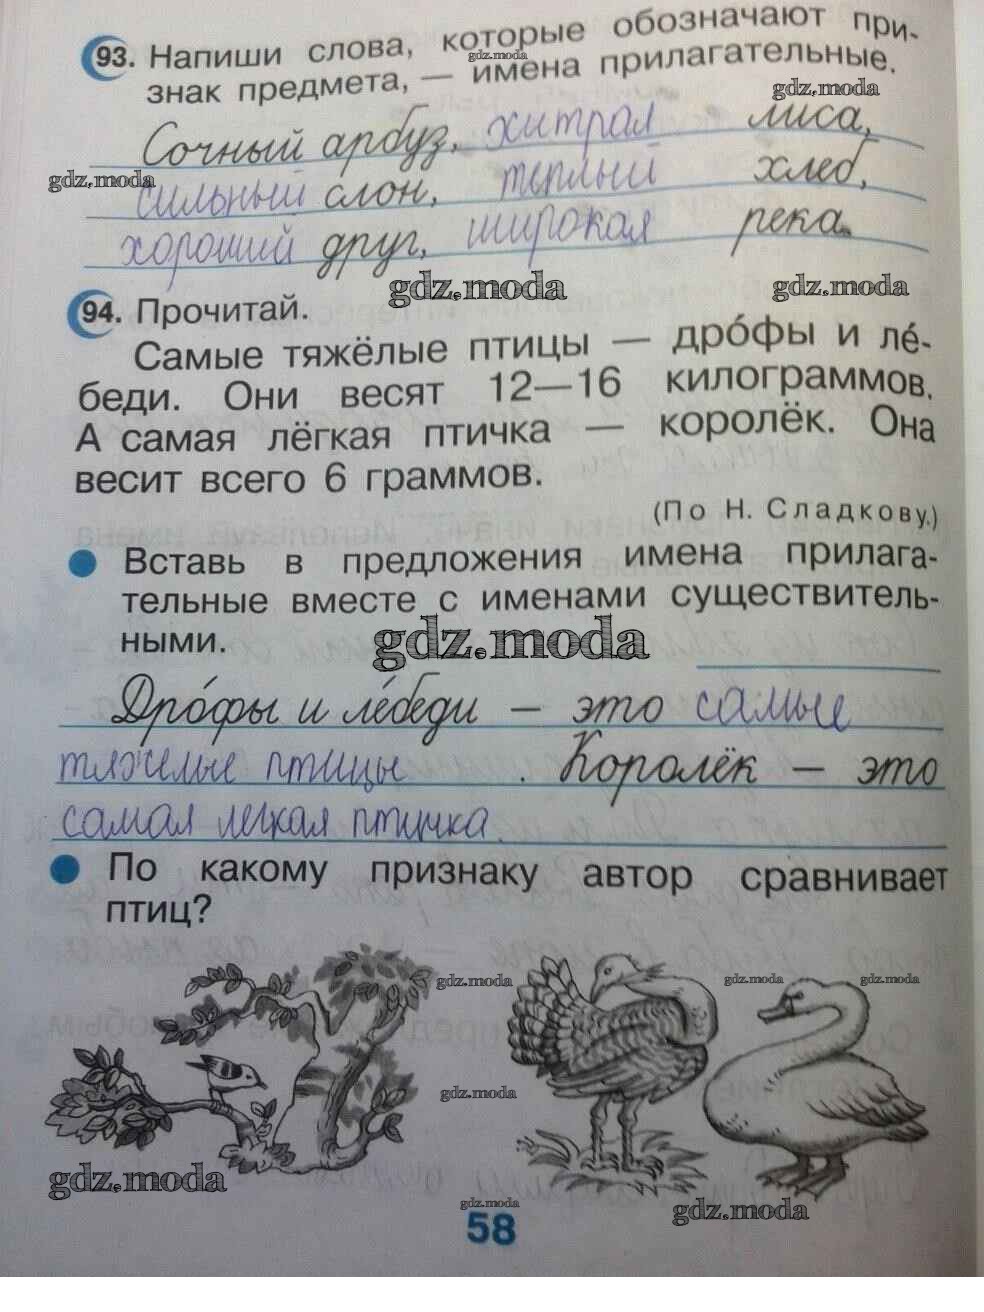 93. Напиши слова, которые обозначают при-
gdz.moda
знак предмета, — имена прилагательные.
gdz.moda
Сочный арбуз, хитрая лиса,
gdz.moda
сильный слон, теплый хлеб,
хороший друг, широкая река.
gdz.moda gdz.moda
94. Прочитай.
Самые тяжёлые птицы — дро́фы и ле́-
беди. Они весят 12—16 килограммов.
А самая лёгкая птичка — королёк. Она
весит всего 6 граммов.
(По Н. Сладкову.)
Вставь в предложения имена прилага-
тельные вместе с именами существитель-
ными.
gdz.moda
Дро́фы и ле́беди – это самые
тяжелые птицы. Королёк – это
самая легкая птичка.
По какому признаку автор сравнивает
птиц?
gdz.moda gdz.moda gdz.moda
gdz.moda
gdz.moda
gdz.moda gdz.moda
58